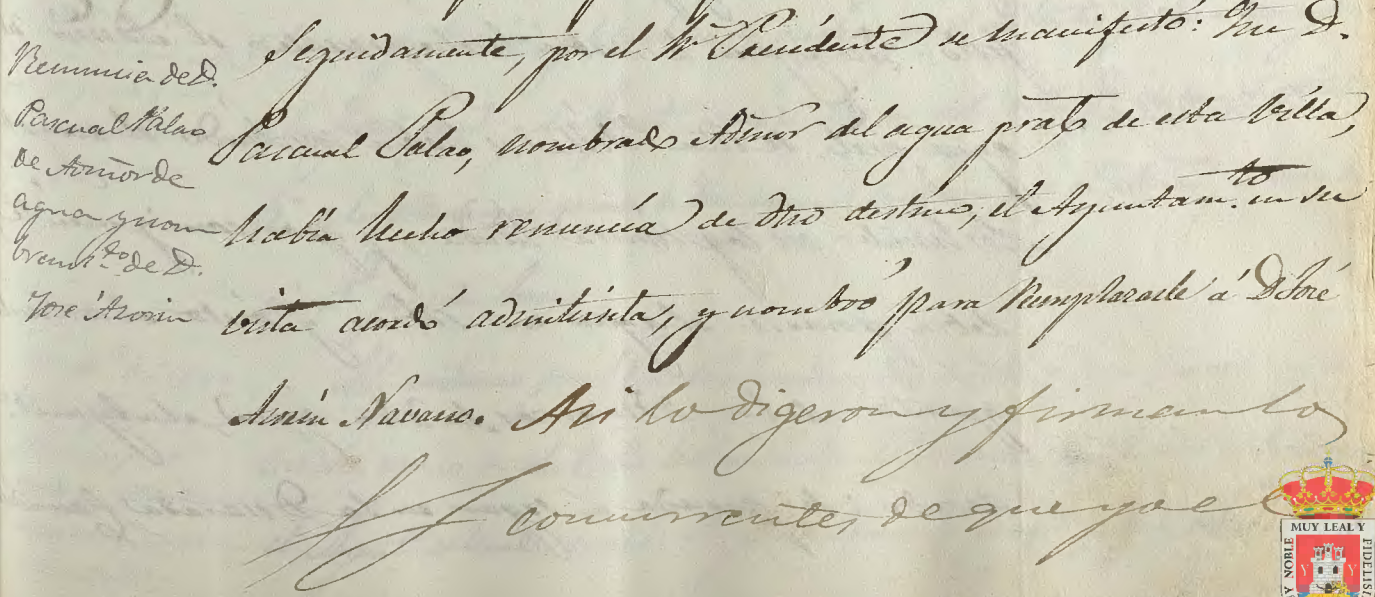 Renuncia de D.
Pascual Palao
de Admor de
aguas y nom
bram.to de D.
José Azorin
Seguidamente, por el Sr Presidente se manifestó: Que D.
Pascual Palao, nombrado Admor del agua pral de esta Villa,
había hecho renuncia de dho destino, el Ayuntam.to en su
vista acordó admitirsela, y nombró para reemplazarle á D José
Azorín Navarro. Asi lo digeron y firman los
concurrentes de que yo el
MUY LEAL Y
Y NOBLE
FIDELIS
Y Y